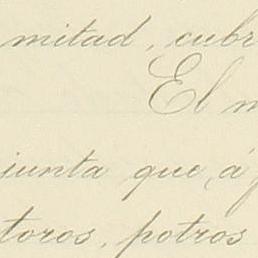 mitad, cubr
El m
junta que, á
toros, potros